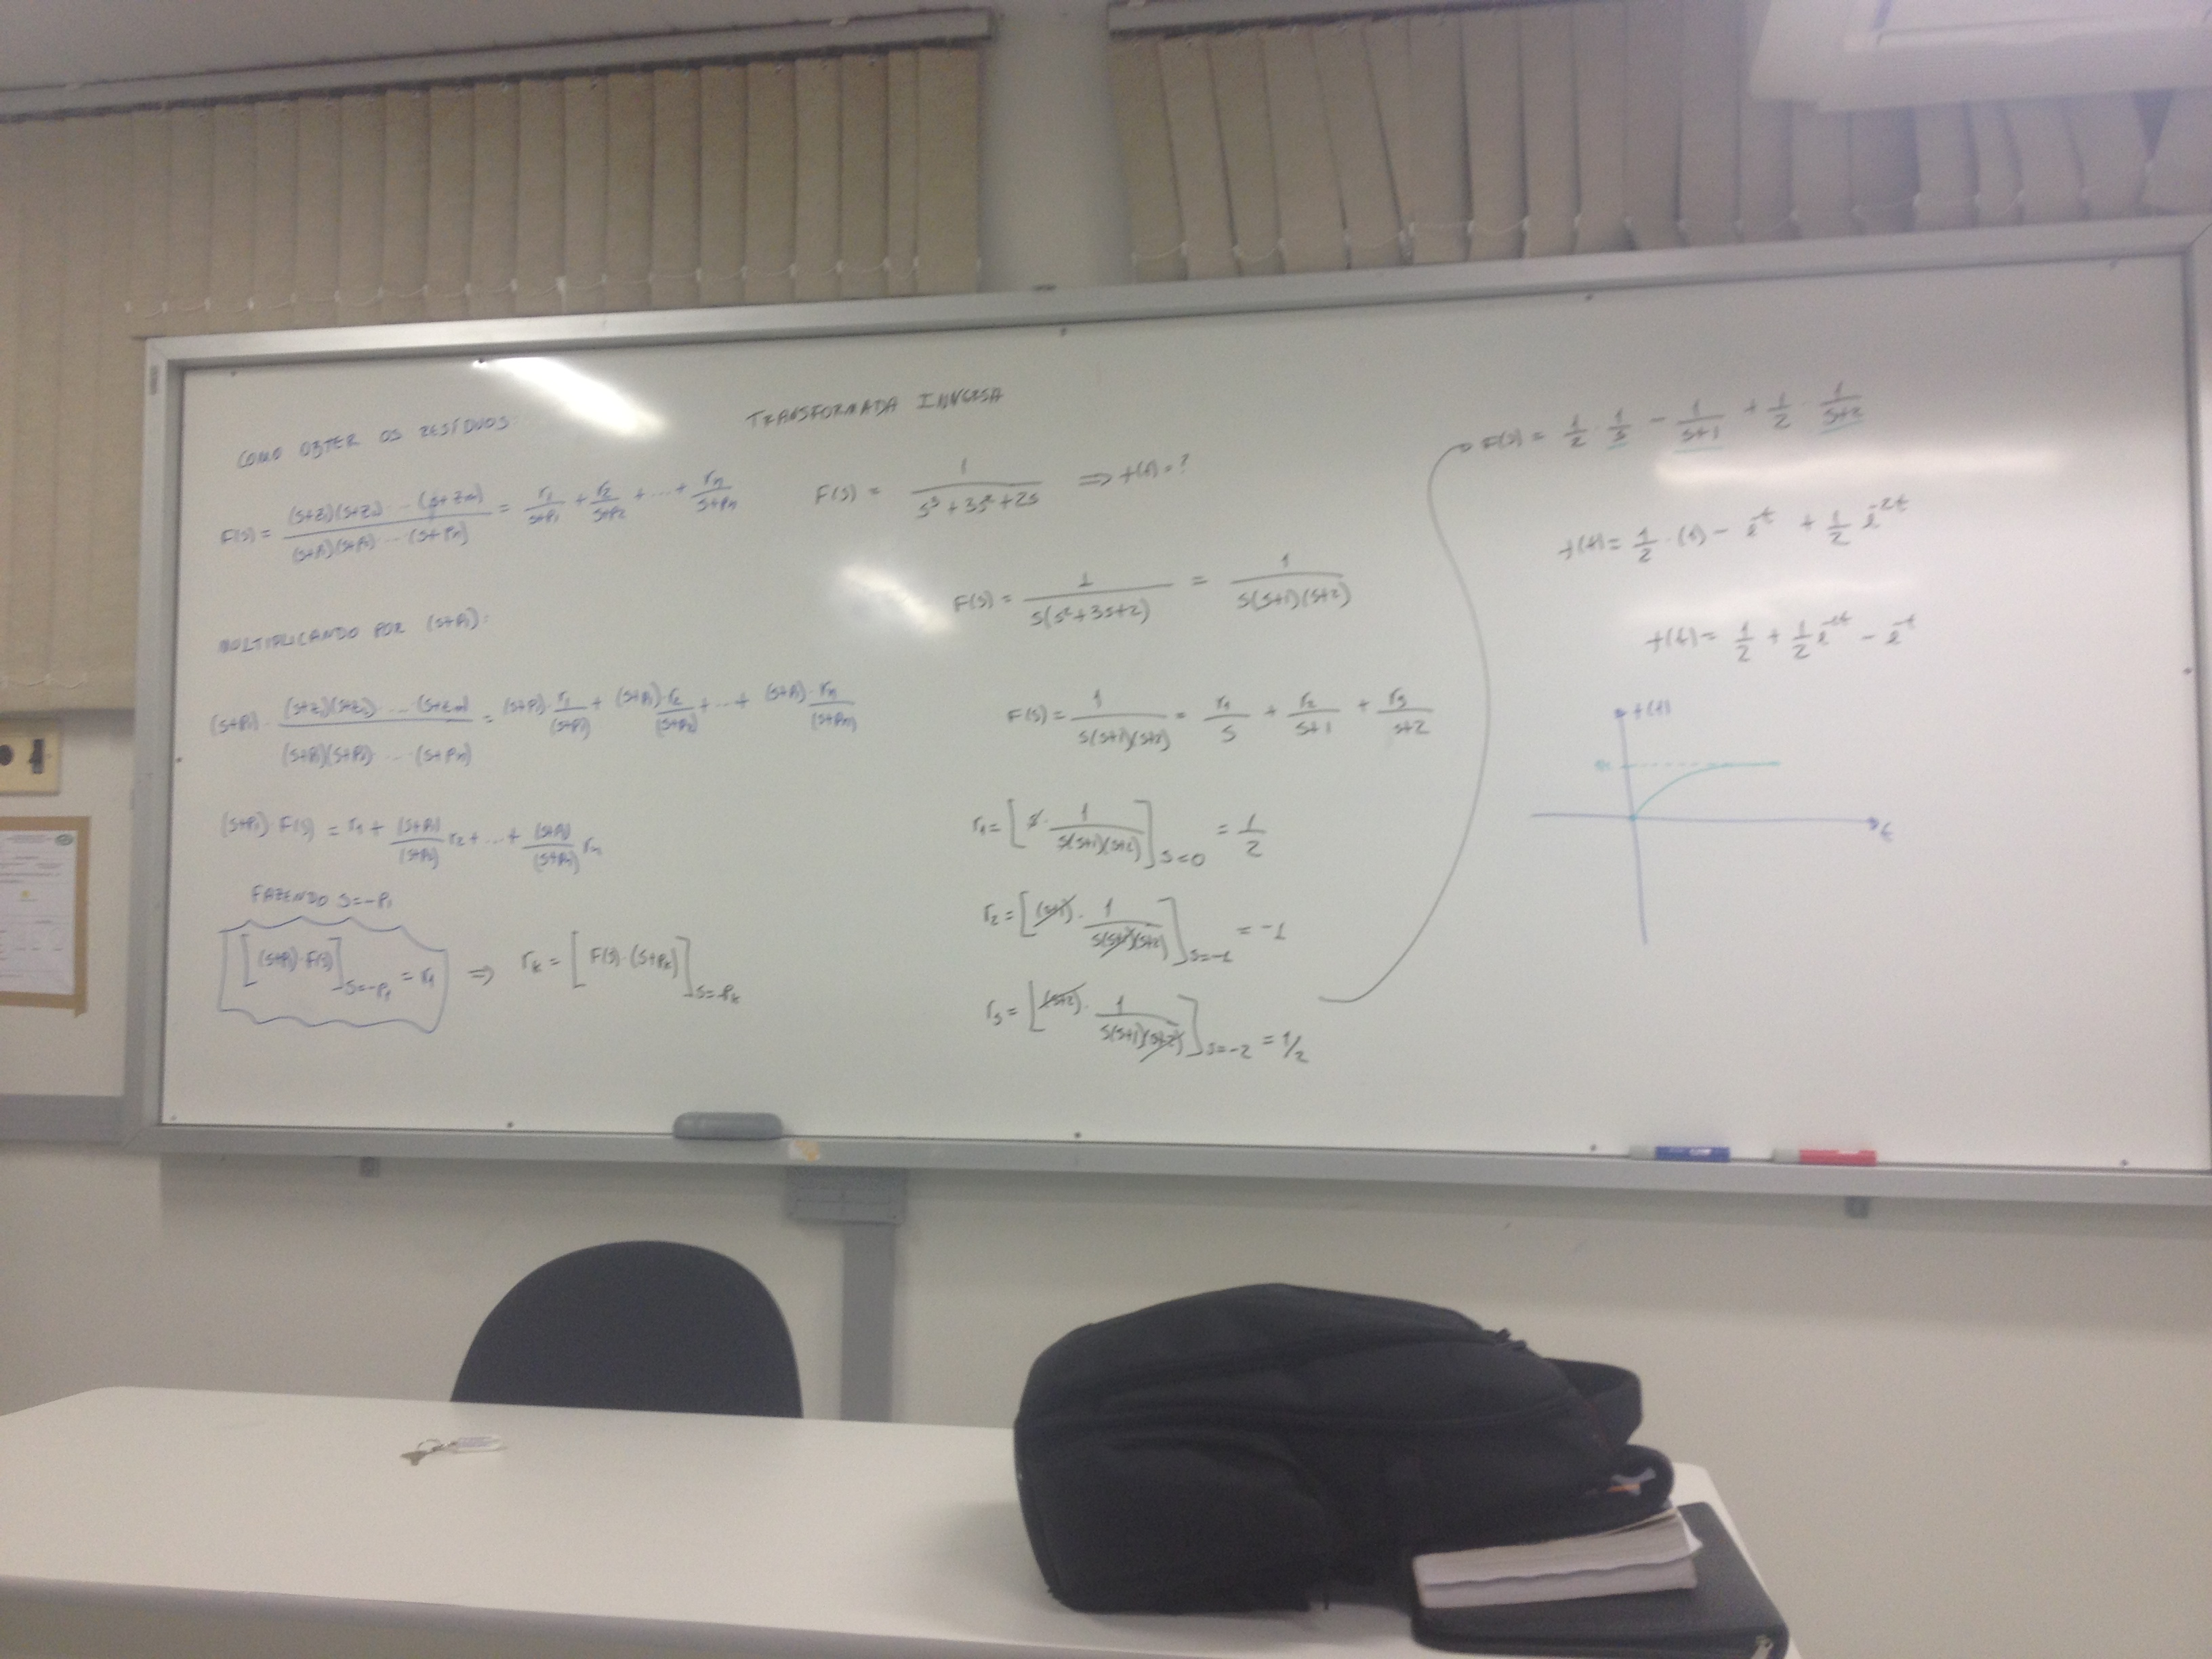 TRANSFORMADA INVERSA
COMO OBTER OS RESÍDUOS:
F(s) = (s+z₁)(s+z₂) ... (s+zm) / (s+p₁)(s+p₂) ... (s+pn) = r₁/(s+p₁) + r₂/(s+p₂) + ... + rn/(s+pn)
MULTIPLICANDO POR (s+p₁):
(s+p₁) · (s+z₁)(s+z₂) ... (s+zm) / (s+p₁)(s+p₂) ... (s+pn) = (s+p₁) · r₁/(s+p₁) + (s+p₁) · r₂/(s+p₂) + ... + (s+p₁) · rn/(s+pn)
(s+p₁) · F(s) = r₁ + (s+p₁)/(s+p₂) r₂ + ... + (s+p₁)/(s+pn) rn
FAZENDO s=-p₁
[(s+p₁) · F(s)] s=-p₁ = r₁ ⇒ rk = [F(s) · (s+pk)] s=-pk
F(s) = 1/(s³+3s²+2s) ⇒ f(t) = ?
F(s) = 1/(s(s²+3s+2)) = 1/(s(s+1)(s+2))
F(s) = 1/(s(s+1)(s+2)) = r₁/s + r₂/(s+1) + r₃/(s+2)
r₁ = [s · 1/(s(s+1)(s+2))] s=0 = 1/2
r₂ = [(s+1) · 1/(s(s+1)(s+2))] s=-1 = -1
r₃ = [(s+2) · 1/(s(s+1)(s+2))] s=-2 = 1/2
F(s) = 1/2 · 1/s - 1/(s+1) + 1/2 · 1/(s+2)
f(t) = 1/2 · (1) - e^-t + 1/2 e^-2t
f(t) = 1/2 + 1/2 e^-2t - e^-t
f(t)
t